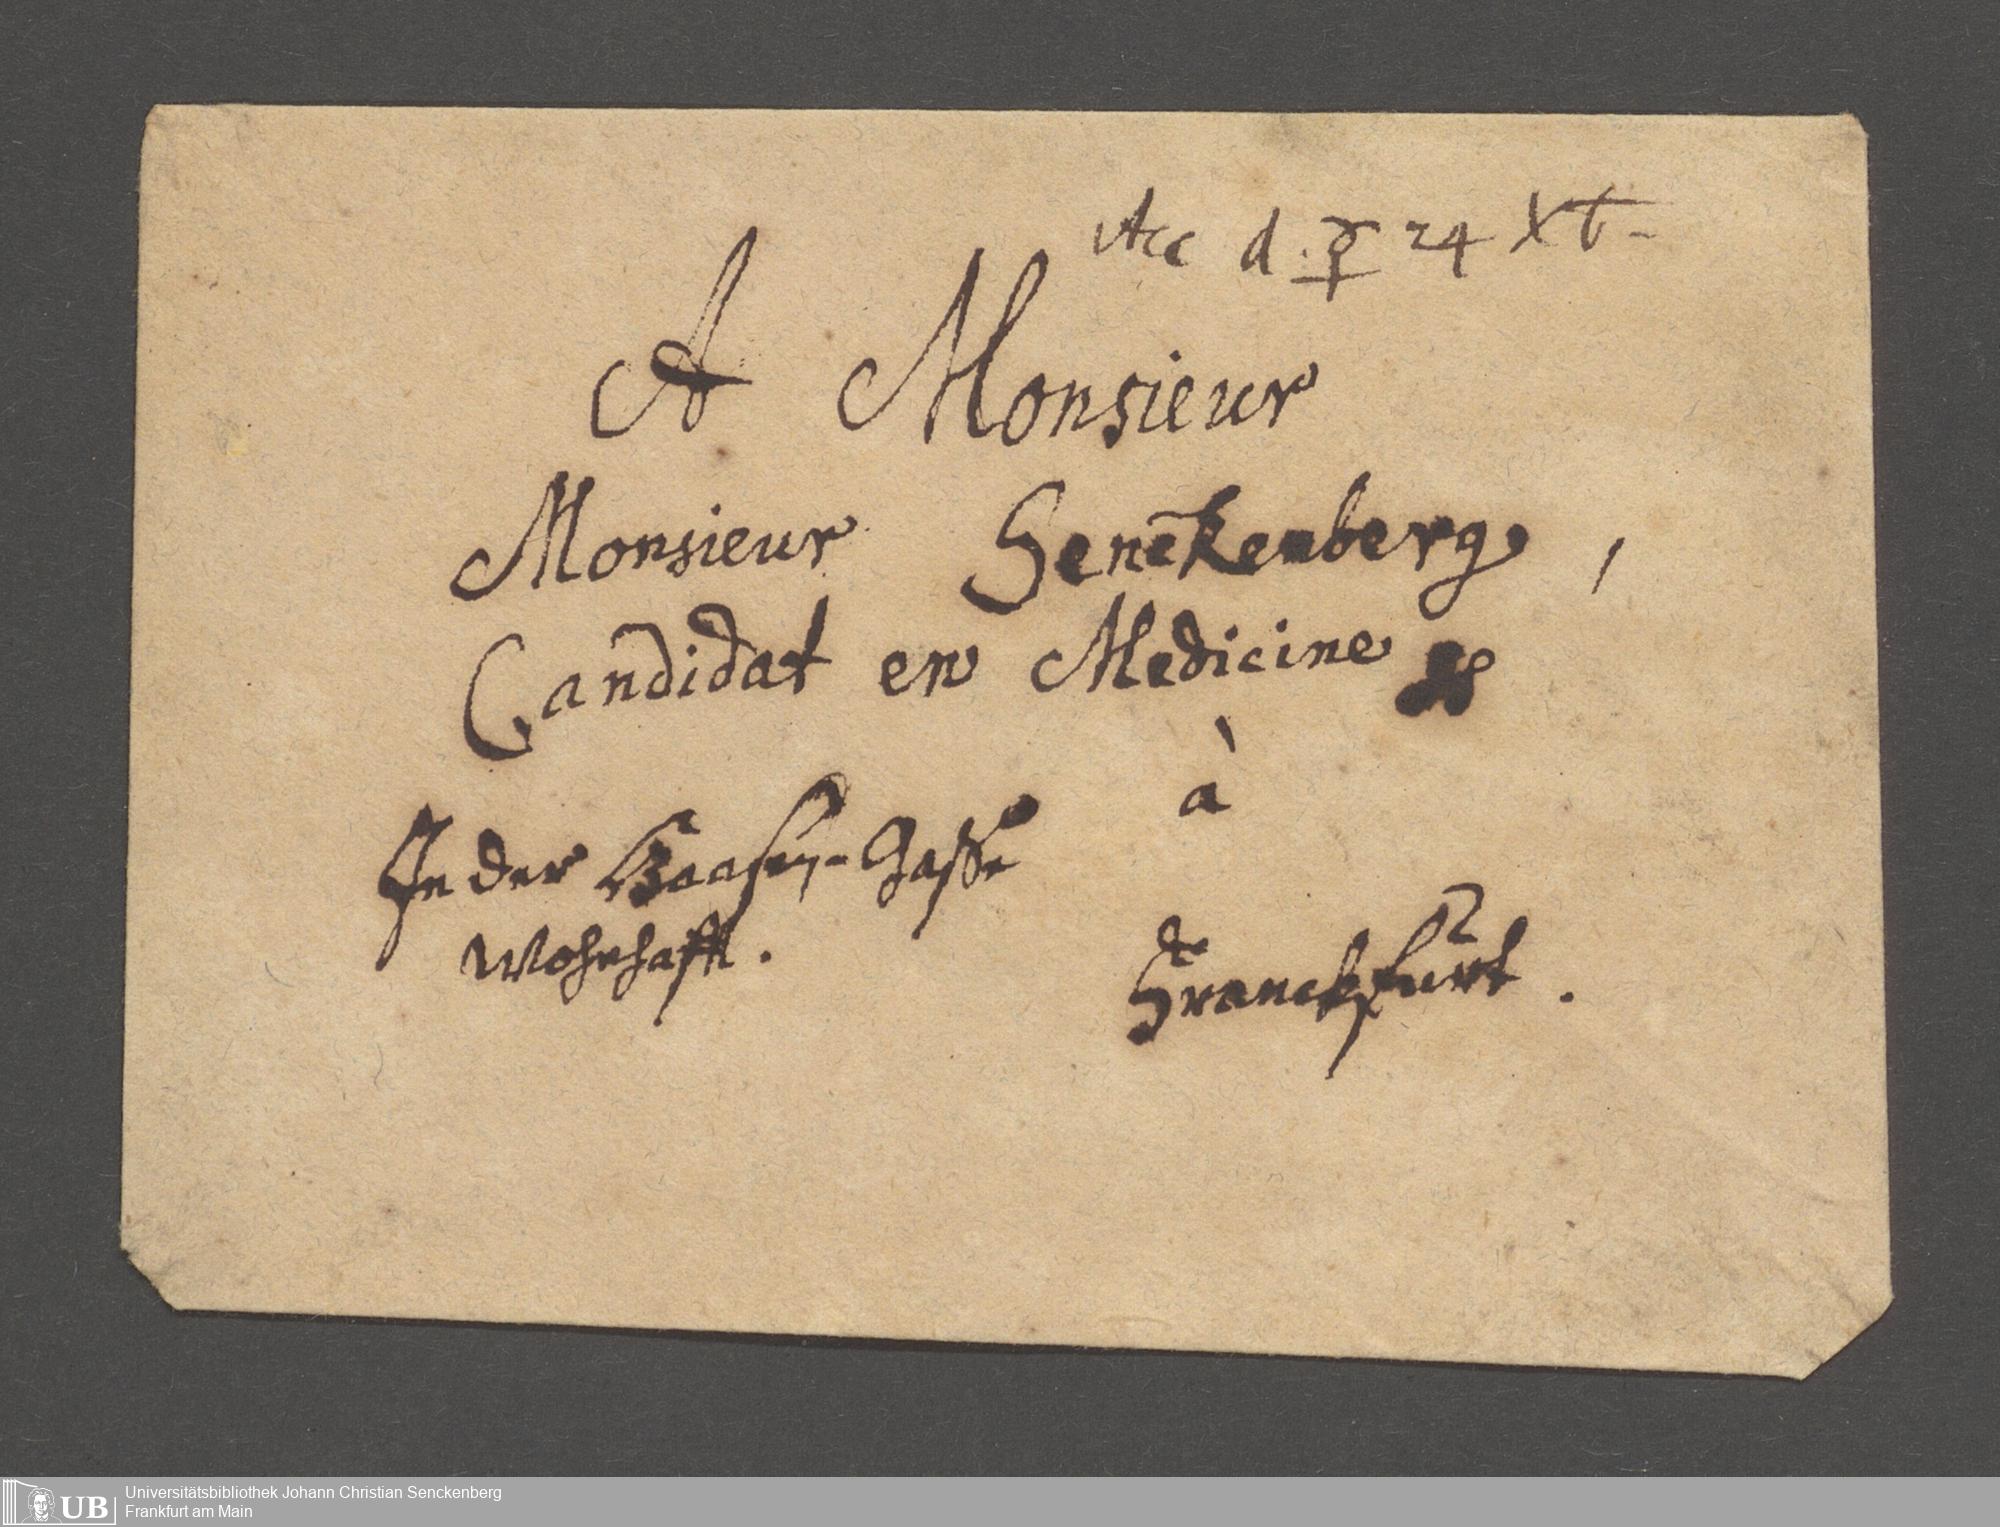 Acc d. 24 Xb.
A Monsieur
Monsieur Senckenberg,
Candidat en Medicine
à
In der Haasen-Gasse
wohnhafft.
Franckfurt.
UB
Universitätsbibliothek Johann Christian Senckenberg
Frankfurt am Main